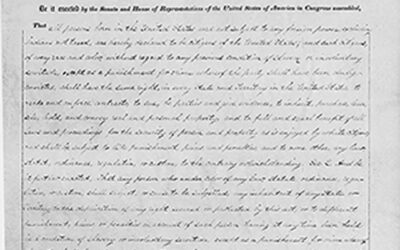 Be it enacted by the Senate and House of Representatives of the United States of America in Congress assembled,
That all persons born in the United States and not subject to any foreign power, excluding
Indians not taxed, are hereby declared to be citizens of the United States; and such citizens,
of every race and color, without regard to any previous condition of slavery or involuntary
servitude, except as a punishment for crime whereof the party shall have been duly
convicted, shall have the same right, in every State and Territory in the United States, to
make and enforce contracts, to sue, be parties, and give evidence, to inherit, purchase, lease,
sell, hold, and convey real and personal property, and to full and equal benefit of all
laws and proceedings for the security of person and property, as is enjoyed by white citizens,
and shall be subject to like punishment, pains, and penalties, and to none other, any law,
statute, ordinance, regulation, or custom, to the contrary notwithstanding. Sec. 2. And be
it further enacted, That any person who, under color of any law, statute, ordinance, regu-
lation, or custom, shall subject, or cause to be subjected, any inhabitant of any State or
Territory to the deprivation of any right secured or protected by this act, or to different
punishment, pains, or penalties on account of such person having at any time been held
in a condition of slavery or involuntary servitude, except as a punishment for crime